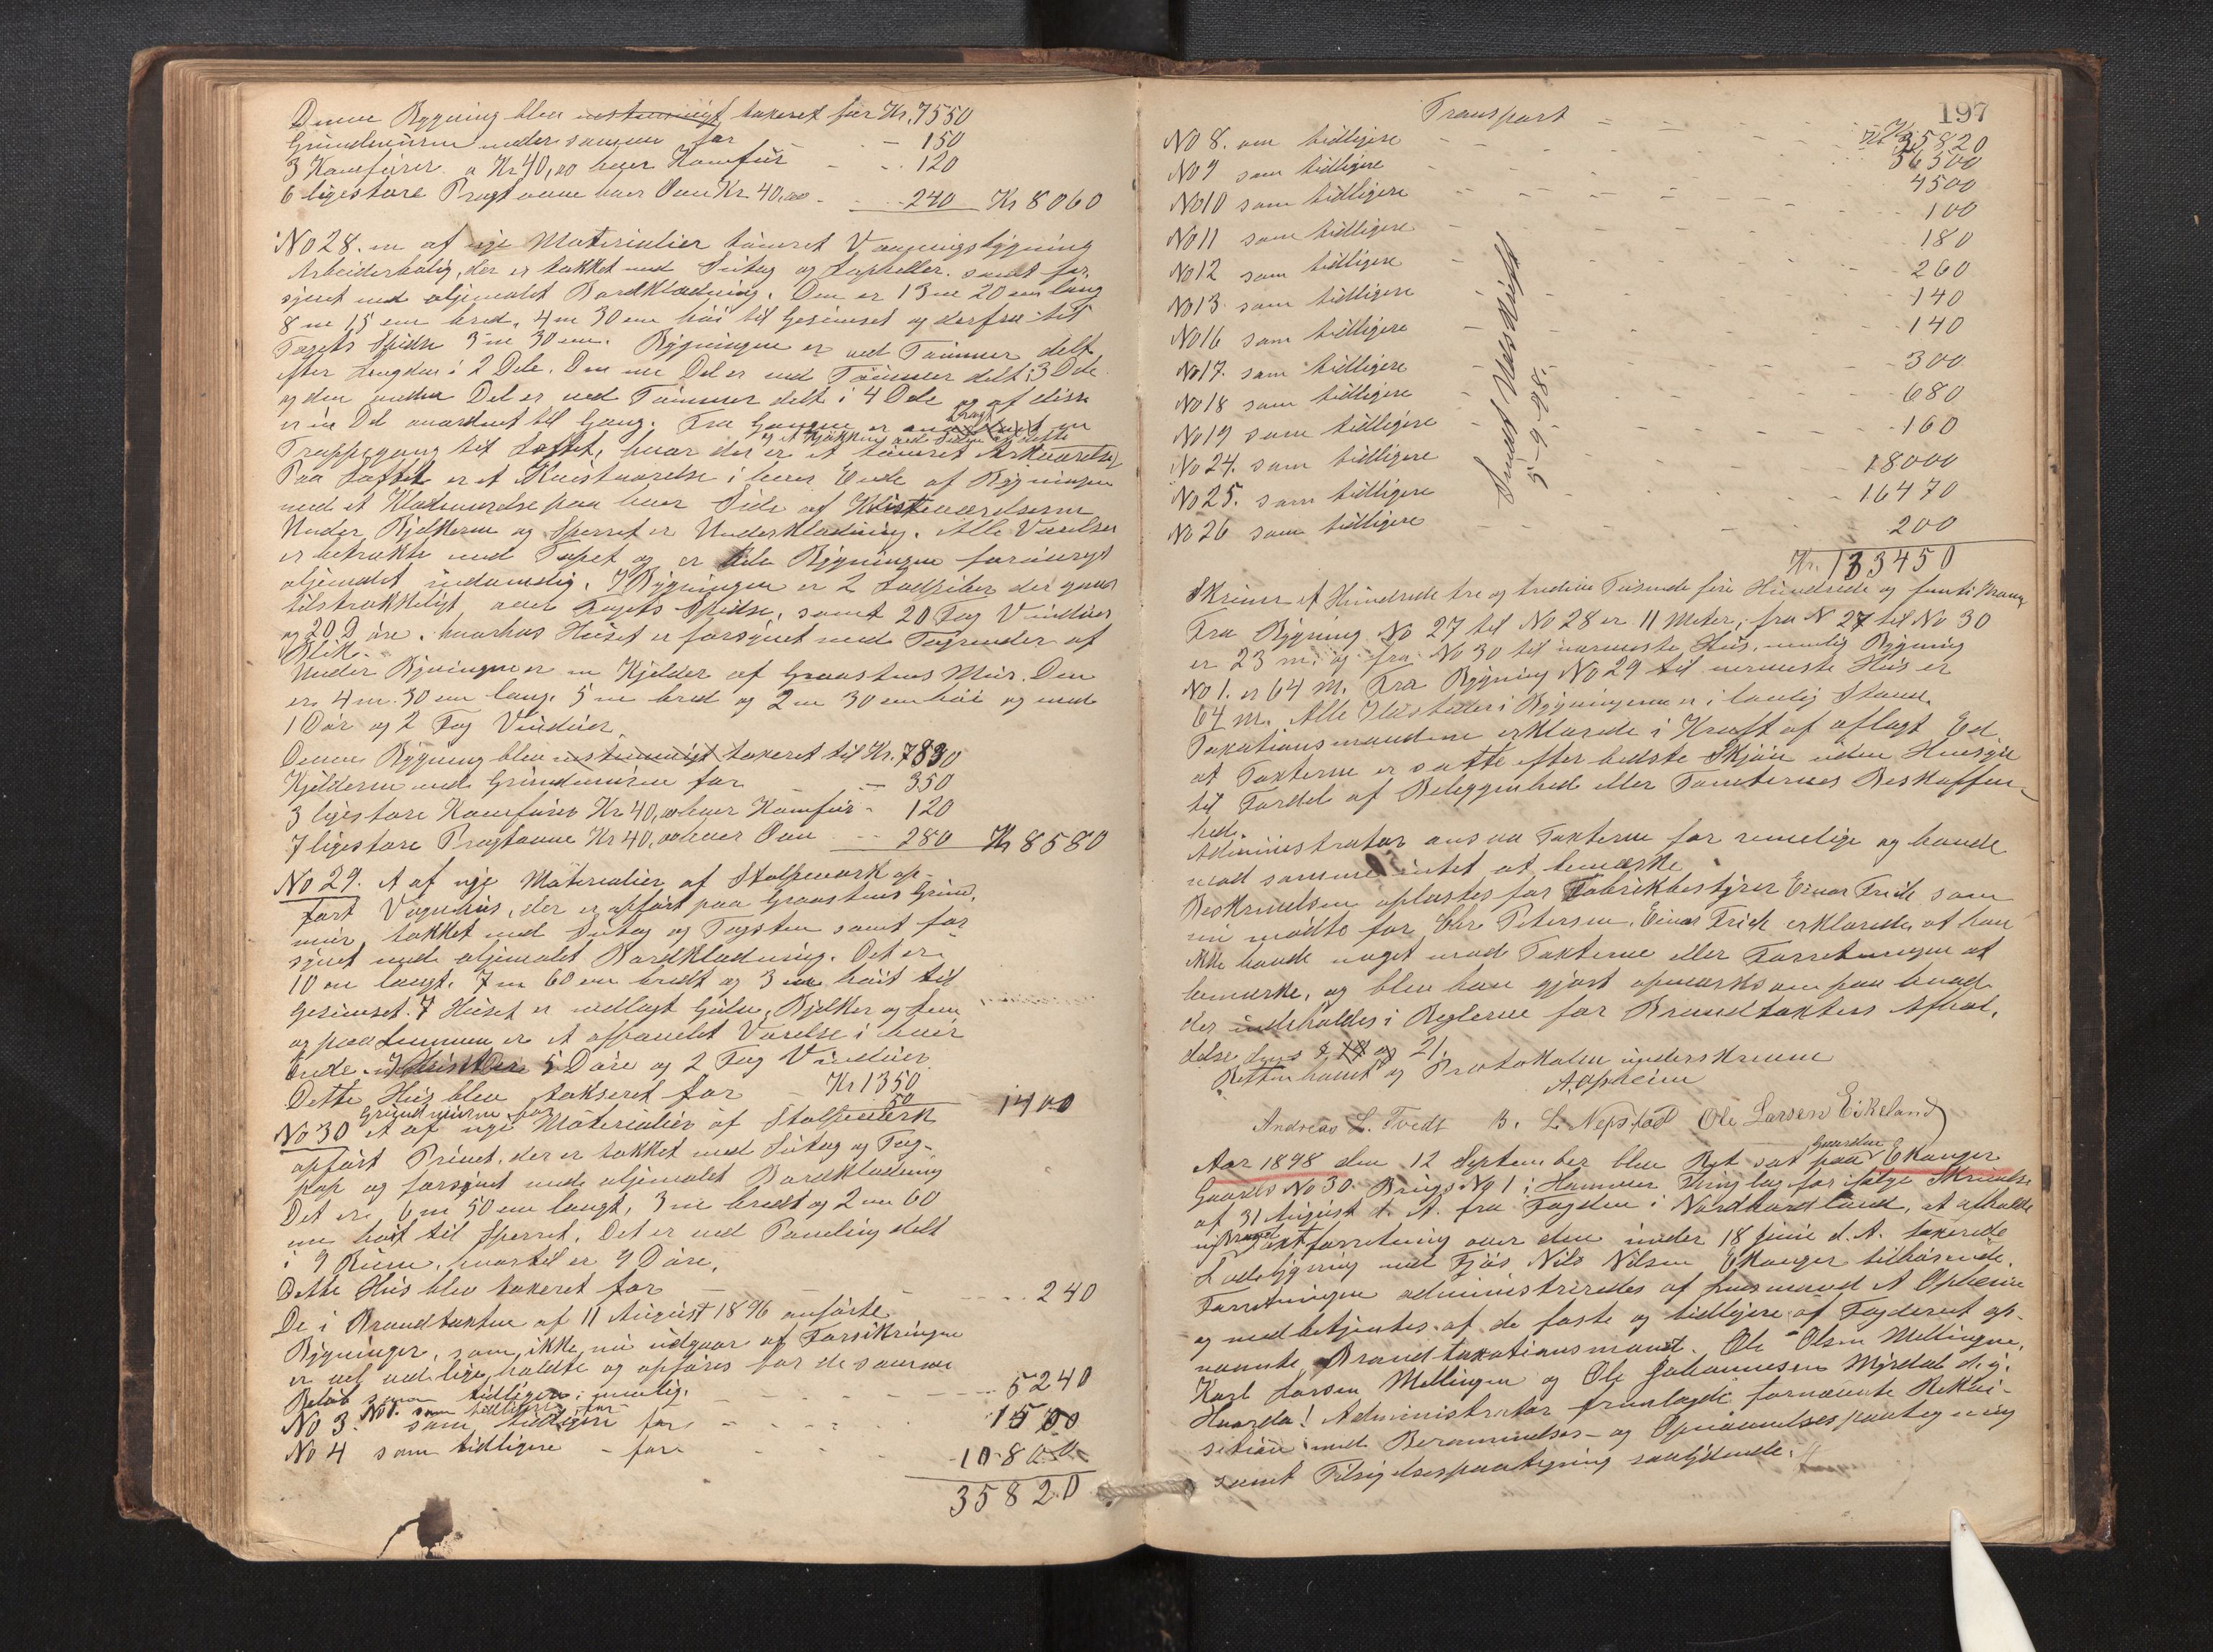 Denne Bygning blev enstemmigt taxeret for Kr. 7550
Grundmuren under samme for - - 150
3 Komfurer a Kr 40,00 hver Komfur - - 120
6 ligestore Pragtovne hver Ovn Kr 40,00 - - 240 Kr 8060
No 28. en af nye Materialier tømret Vaaningsbygning
Arbeiderbolig, der er tækket med Sutag og Lapheller samt for-
synet med oljemalet Bordklædning. Den er 13 m 20 cm lang
8 m 15 cm bred, 4 m 30 cm höi til Gesimset og derfra til
Tagets Spidse 3 m 30 cm. Bygningen er ved Tømmer delt
efter Længden i 2 Dele. Den ene Del er ved Tømmer delt i 3 Dele
og den anden Del er ved Tømmer delt i 4 Dele og af disse
er en Del anordnet til Gang. Fra Gangen er anordnet en
Trappegang til Loftet, hvor der er et tømret Arkværelse
og et Kjøkken ved Siden af dette
Paa Loftet er et Kvistværelse i hver Ende af Bygningen
med et Klædeværelse paa hver Side af Kvistværelserne
Under Bjelkerne og Sperret er Underklædning. Alle Værelser
er betrukke med Tapet og er hele Bygningen forøvrigt
oljemalet indvendig. I Bygningen er 2 Ladpiber der gaar
tilstrækkeligt over Tagets Spidse, samt 20 Fag Vinduer
og 20 Døre. hvorhos Huset er forsynet med Tagrender af
Blik.
Under Bygningen er en Kjelder af Graastens Mur. Den
er 4 m 30 cm lang, 5 m bred og 2 m 30 cm höi og med
1 Dør og 2 Fag Vinduer.
Denne Bygning blev enstemmigt taxeret til Kr. 7830
Kjelderen med Grundmuren for - - 350
3 ligestore Komfurer Kr 40,00 hver Komfur - 120
7 ligestore Pragtovne Kr 40,00 hver Ovn - - 280 Kr 8580
No 29. et af nye Materialier af Stolpeværk op-
ført Vognhus, der er opført paa Graastens Grund-
mur, tækket med Sutag og Tagsten samt for-
synet med oljemalet Bordklædning. Det er
10 m langt, 7 m 60 cm bredt og 3 m höit til
Gesimset. I Huset er nedlagt Gulv, Bjelker og Lem
og paa Lemmen er et afpanelet Værelse i hver
Ende. 5 Døre og 2 Fag Vinduer.
Dette Hus blev takseret for Kr 1350
Grundmuren for 50 1400
No 30 et af nye Materialier af Stolpeværk
opført Privet, der er tækket med Sutag og Tag-
pap og forsynet med oljemalet Bordklædning
Det er 6 m 50 cm langt, 3 m bredt og 2 m 60
cm höit til Sperret. Det er ved Paneling delt
i 9 Rum, hvortil er 9 Døre.
Dette Hus blev taxeret for - - - 240
De i Brandtakten af 11 August 1896 anførte
Bygninger, som ikke nu udgaar af Forsikringen
er vel vedligeholdte og opføres for de samme
Beløb som tidligere; nemlig.
No 1. som tidligere for - - 5240
No 3. som tidligere for - - - 1500
No 4 som tidligere - for - - 10800
35820
197
Transport - - - - Kr 35820
No 8. om tidligere - - - 56500
No 9 som tidligere - - - 4500
No 10 som tidligere - - - 100
No 11 som tidligere - - - 180
No 12 som tidligere - - - 260
No 13. som tidligere - - - 140
No 16 som tidligere - - - 140
No 17. som tidligere - - - 300
No 18 som tidligere - - - 680
No 19 som tidligere - - - 160
No 24. som tidligere - - - 18000
No 25. som tidligere - - - 16470
No 26 som tidligere - - - 200
Kr. 133450
Sendt Udskrift
5-9-98.
Skriver et Hundrede tre og tredive Tusinde fire Hundrede og femti Kroner
Fra Bygning No 27 til No 28 er 11 Meter, fra No 27 til No 30
er 23 m, og fra No 30 til nærmeste Hus, nemlig Bygning
No 1. er 64 m. Fra Bygning No 29 til nærmeste Hus er
64 m. Alle Ildsteder i Bygningerne er i lovlig Stand.
Taxationsmændene erklærede i Kraft af aflagt Ed
at Taxterne er satte efter bedste Skjøn uden Hensyn
til Fordel af Beleggenhed eller Tomternes Beskaffen-
hed.
Administrator ansaa Taxterne for rimelige og havde
mod samme intet at bemærke.
Beskrivelsen oplæstes for Fabrikbestyrer Einar Frich som
nu mødte for Chr Petersen. Einar Frich erklærede, at han
ikke havde noget mod Taxterne eller Forretningen at
bemærke, og blev han gjort opmærksom paa hvad
der indeholdes i Reglerne for Brandtaxters Afhol-
delse dens § 18 og 21.
Retten hævet og Protokollen underskreven
A. Opheim
Andreas L. Tvedt B. L. Nepstad Ole Larsen Eikeland
Aar 1898 den 12 September blev Ret sat paa Gaarden Ekanger
Gaards No 30 Brugs No 1 i Hammer Thinglag for ifølge Skrivelse
af 31 August d. A. fra Fogden i Nordhordland, at afholde
ny Brandtaxtforretning over den under 18 Juni d. A. taxerede
Ladebygning med Fjøs Nils Nilsen Ekanger tilhørende.
Forretningen administreredes af Lensmand A Opheim
og medbetjentes af de faste og tidligere af Fogderiet op-
nævnte Brandtaxationsmænd. Ole Olsen Mellingen,
Karl Larsen Mellingen og Ole Johannesen Myrdal d. y.
Hvorda! Administrator fremlagde fornævnte Rekvi-
sition med Berammelses- og Opnævnelsespaategning
samt Tilsigelsespaategning saalydende: